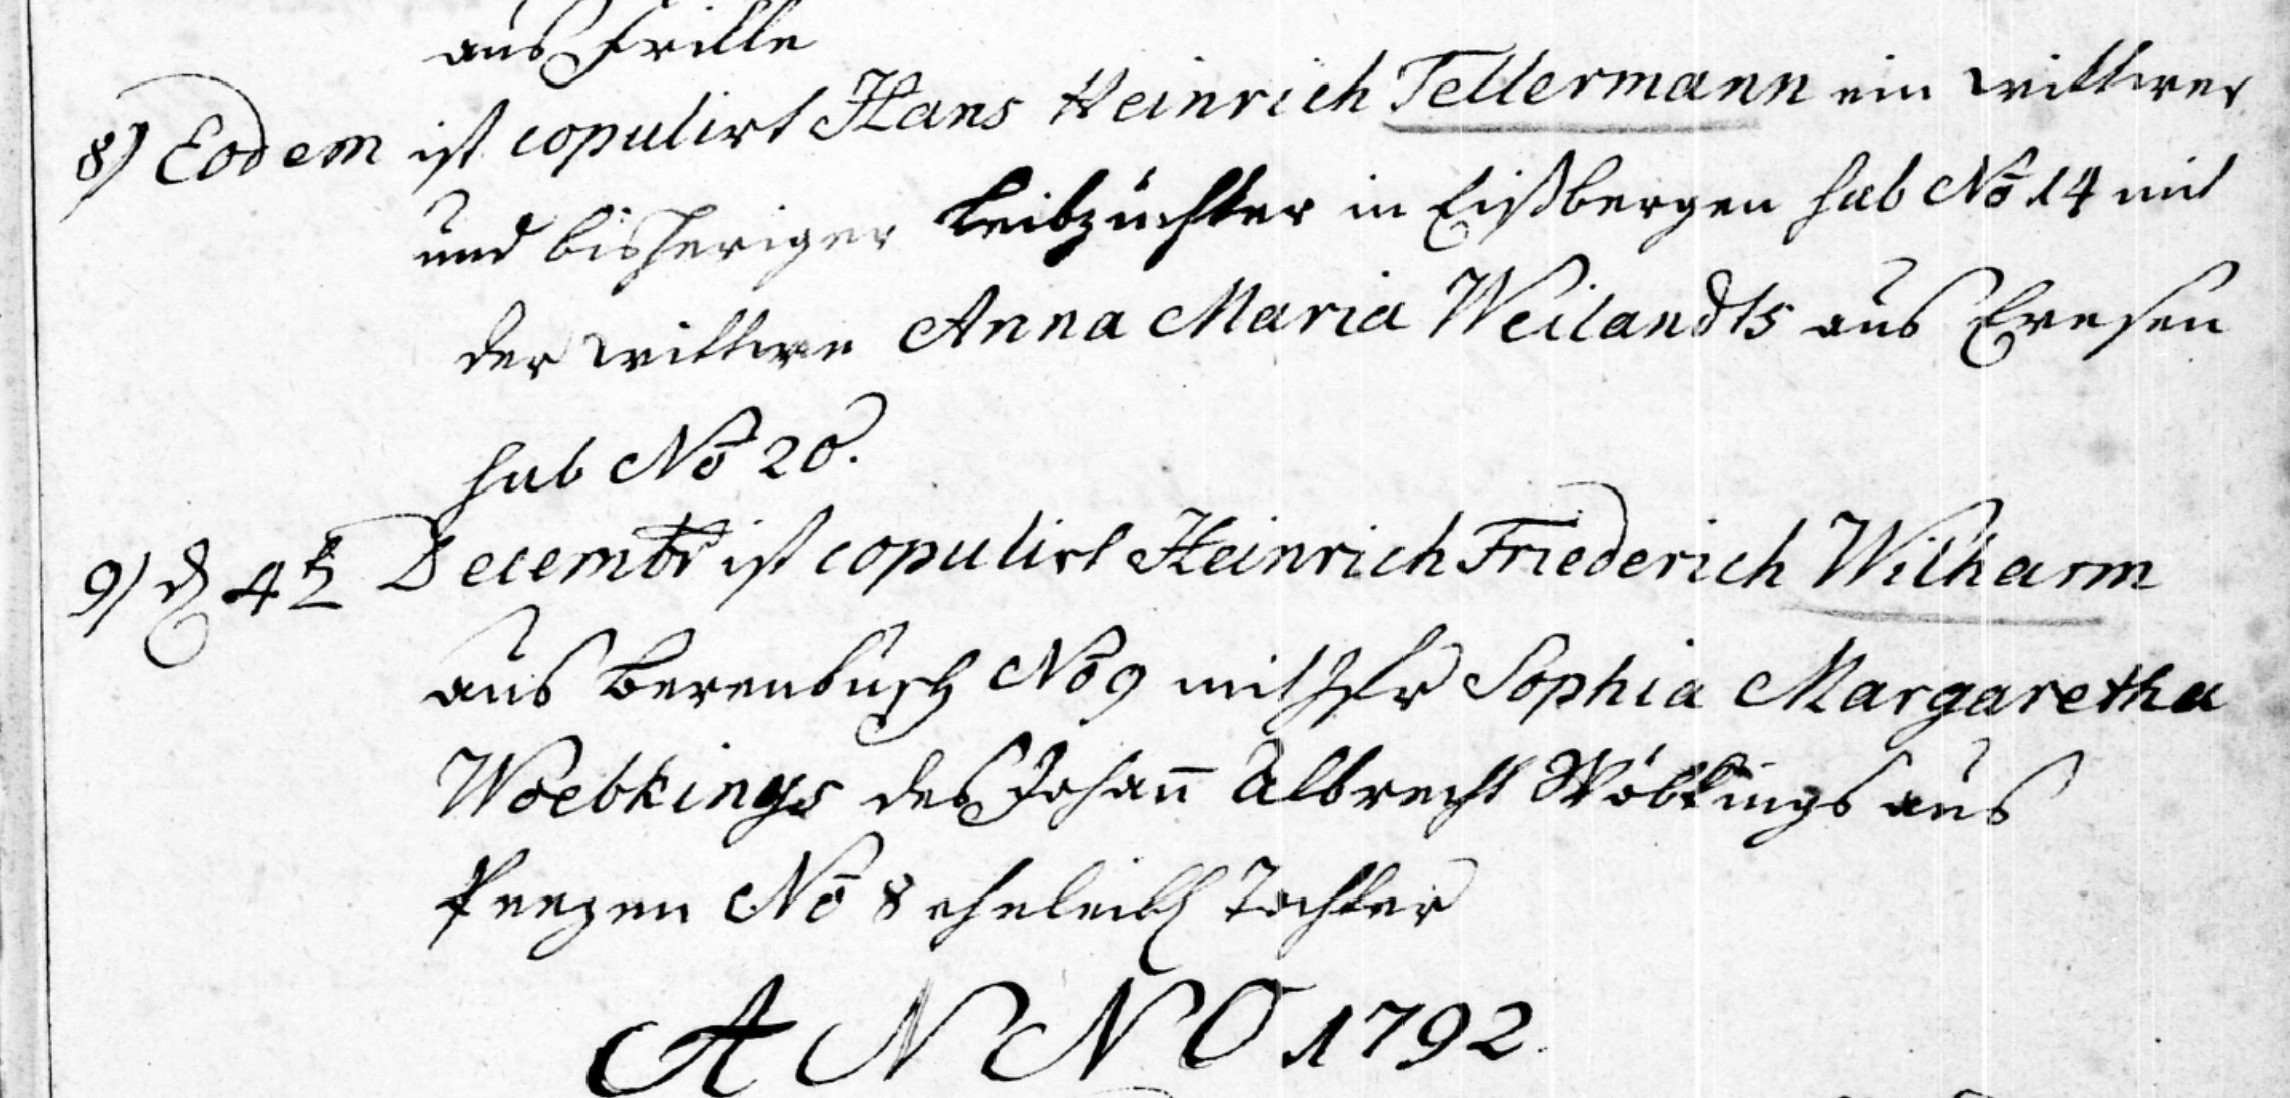 aus Frille
8) Eodem ist copulirt Hans Heinrich Tellermann ein wittwer
und bisheriger Leibzüchter in Eißbergen sub No 14 mit
der wittwe Anna Maria Weilandts aus Evesen
sub No 20.
9) d 4t Decembr ist copulirt Heinrich Friederich Wilharm
aus Berenbusch No 9 mit Jfr Sophia Margaretha
Woebkings des Johan̅ Albrecht Wöbkings aus
Peezen No 8 eheleibl Tochter
ANNO 1792.